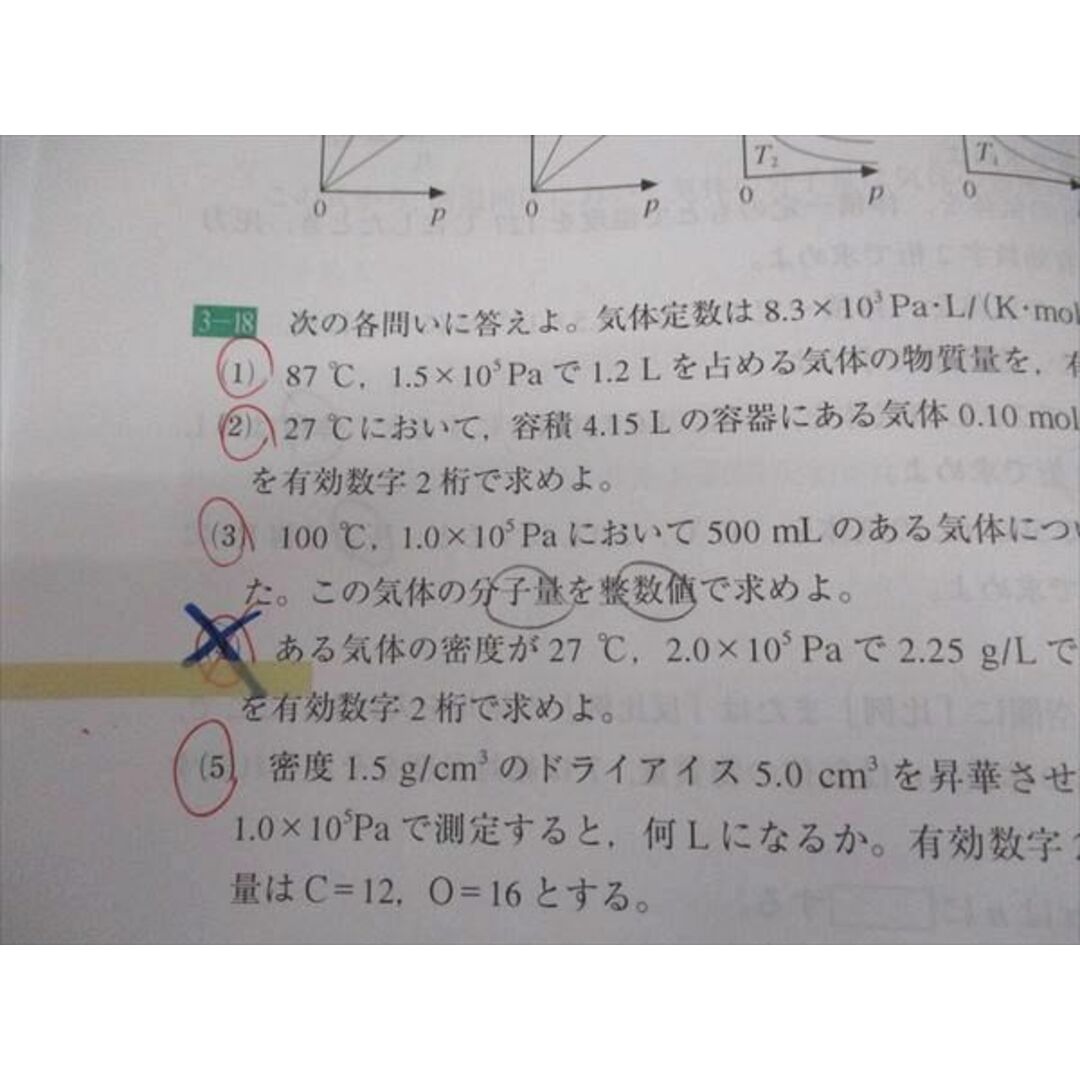 T₂
T₁
0 p
0 p
0 p
0
3-18 次の各問いに答えよ。気体定数は 8.3×10³ Pa・L/(K・mol
(1) 87 ℃, 1.5×10⁵ Pa で 1.2 L を占める気体の物質量を, 有
(2) 27 ℃において, 容積 4.15 L の容器にある気体 0.10 mol
を有効数字 2 桁で求めよ。
(3) 100 ℃, 1.0×10⁵ Pa において 500 mL のある気体につい
た。この気体の分子量を整数値で求めよ。
ある気体の密度が 27 ℃, 2.0×10⁵ Pa で 2.25 g/L で
を有効数字 2 桁で求めよ。
(5) 密度 1.5 g/cm³ のドライアイス 5.0 cm³ を昇華させ
1.0×10⁵Pa で測定すると, 何 L になるか。有効数字 2
量は C=12, O=16 とする。